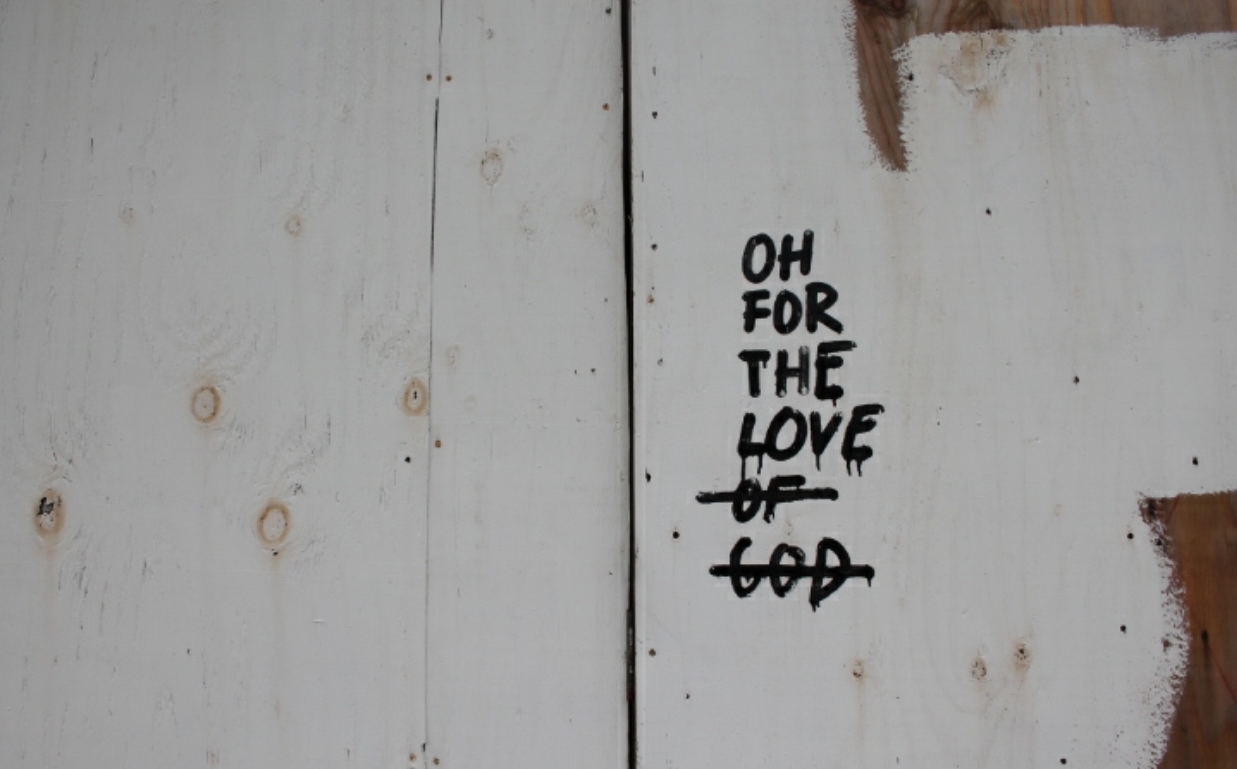 OH
FOR
THE
LOVE
OF
GOD